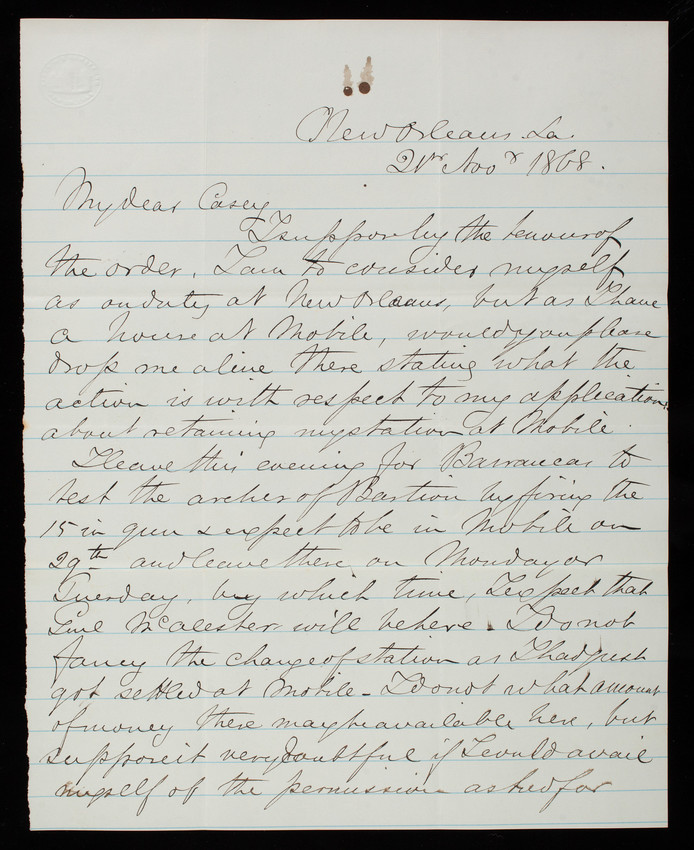 New Orleans. La.
21st Novr 1868.
My dear Casey
I suppose by the tenour of
the order, I am to consider myself
as on duty at New Orleans, but as I have
a house at Mobile, would you please
drop me a line there stating what the
action is with respect to my application
about retaining my station at Mobile.
I leave this evening for Barrancas to
test the arches of Bastion by firing the
15 in gun & expect to be in Mobile on
29th and leave there, on Monday or
Tuesday, by which time, I expect that
Genl McAlester will be here. I do not
fancy the change of station as I had just
got settled at Mobile - I do not what amount
of money there may be available here, but
suppose it very doubtful if I could avail
myself of the permission asked for